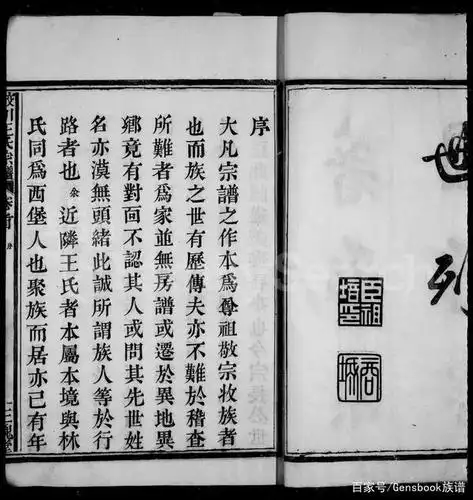 世
臣祖培印
序
大凡宗譜之作本爲尊祖敬宗收族者
也而族之世有歷傳夫亦不難於稽查
所難者爲家並無房譜或遷於異地異
鄉竟有對面不認其人或問其先世姓
名亦漠無頭緒此誠所謂族人等於行
路者也余近隣王氏者本屬本境與林
氏同爲西堡人也聚族而居亦已有年
川王氏宗譜 卷首
百家号/Gensbook族谱